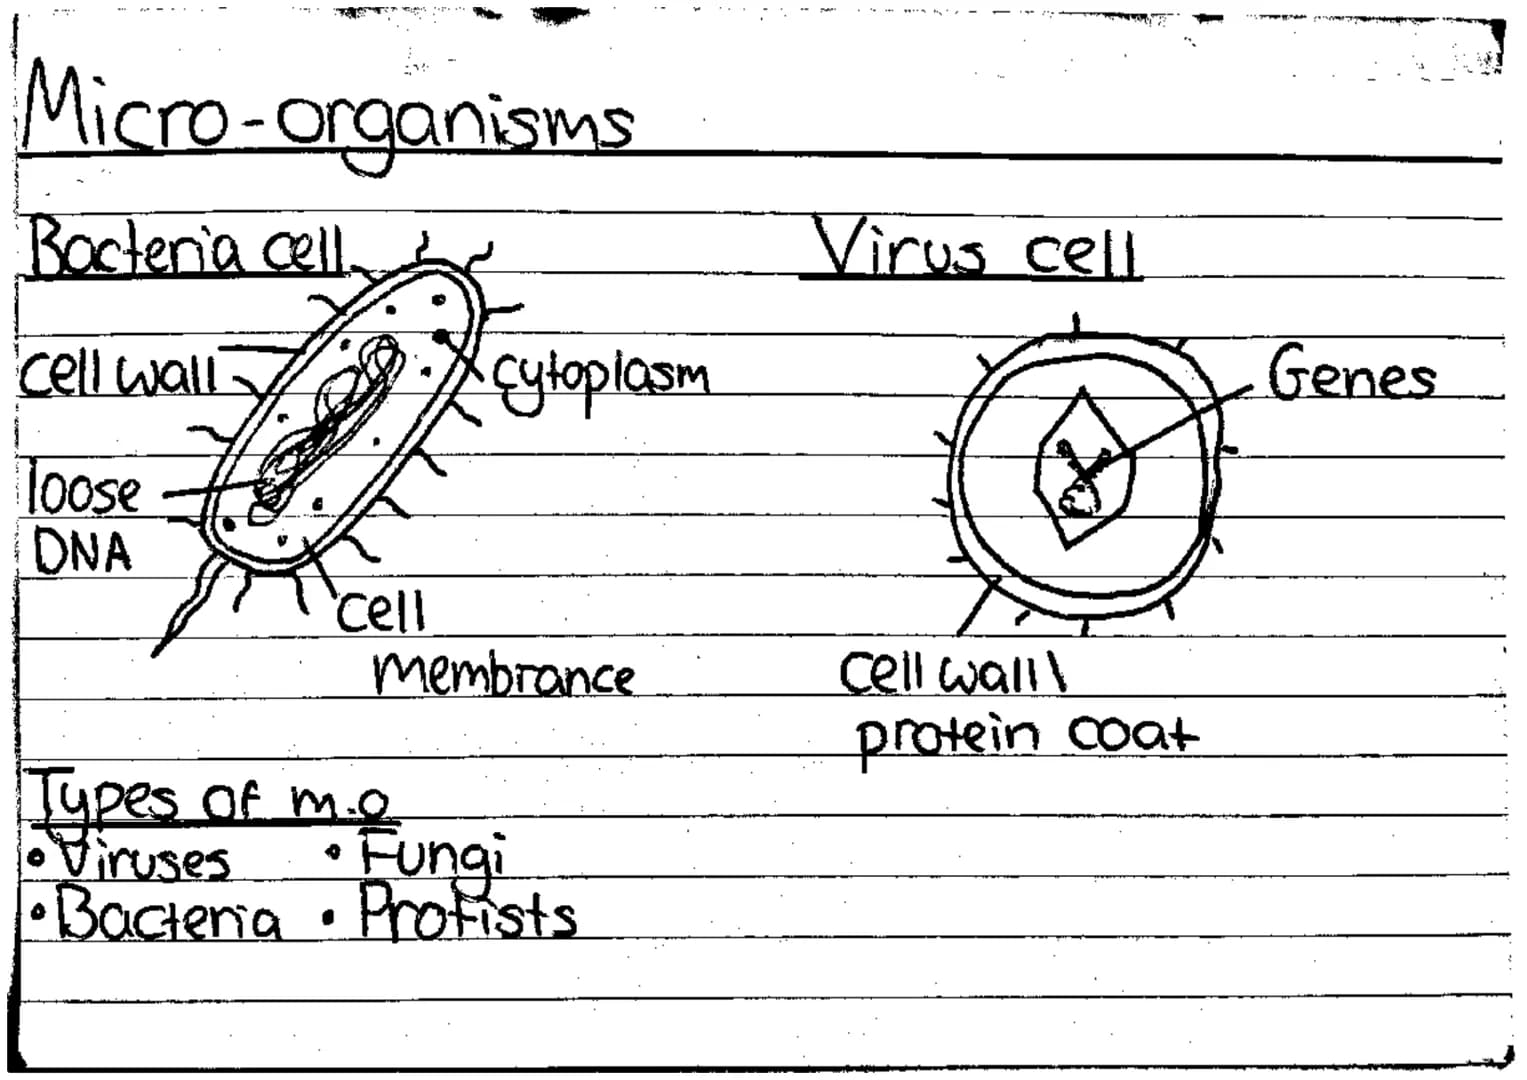 Micro-organisms
Bacteria cell
Virus cell
cell wall
cytoplasm
Genes
loose
DNA
cell
membrance
cell wall\
protein coat
Types of m.o
• Viruses
• Fungi
• Bacteria
• Protists